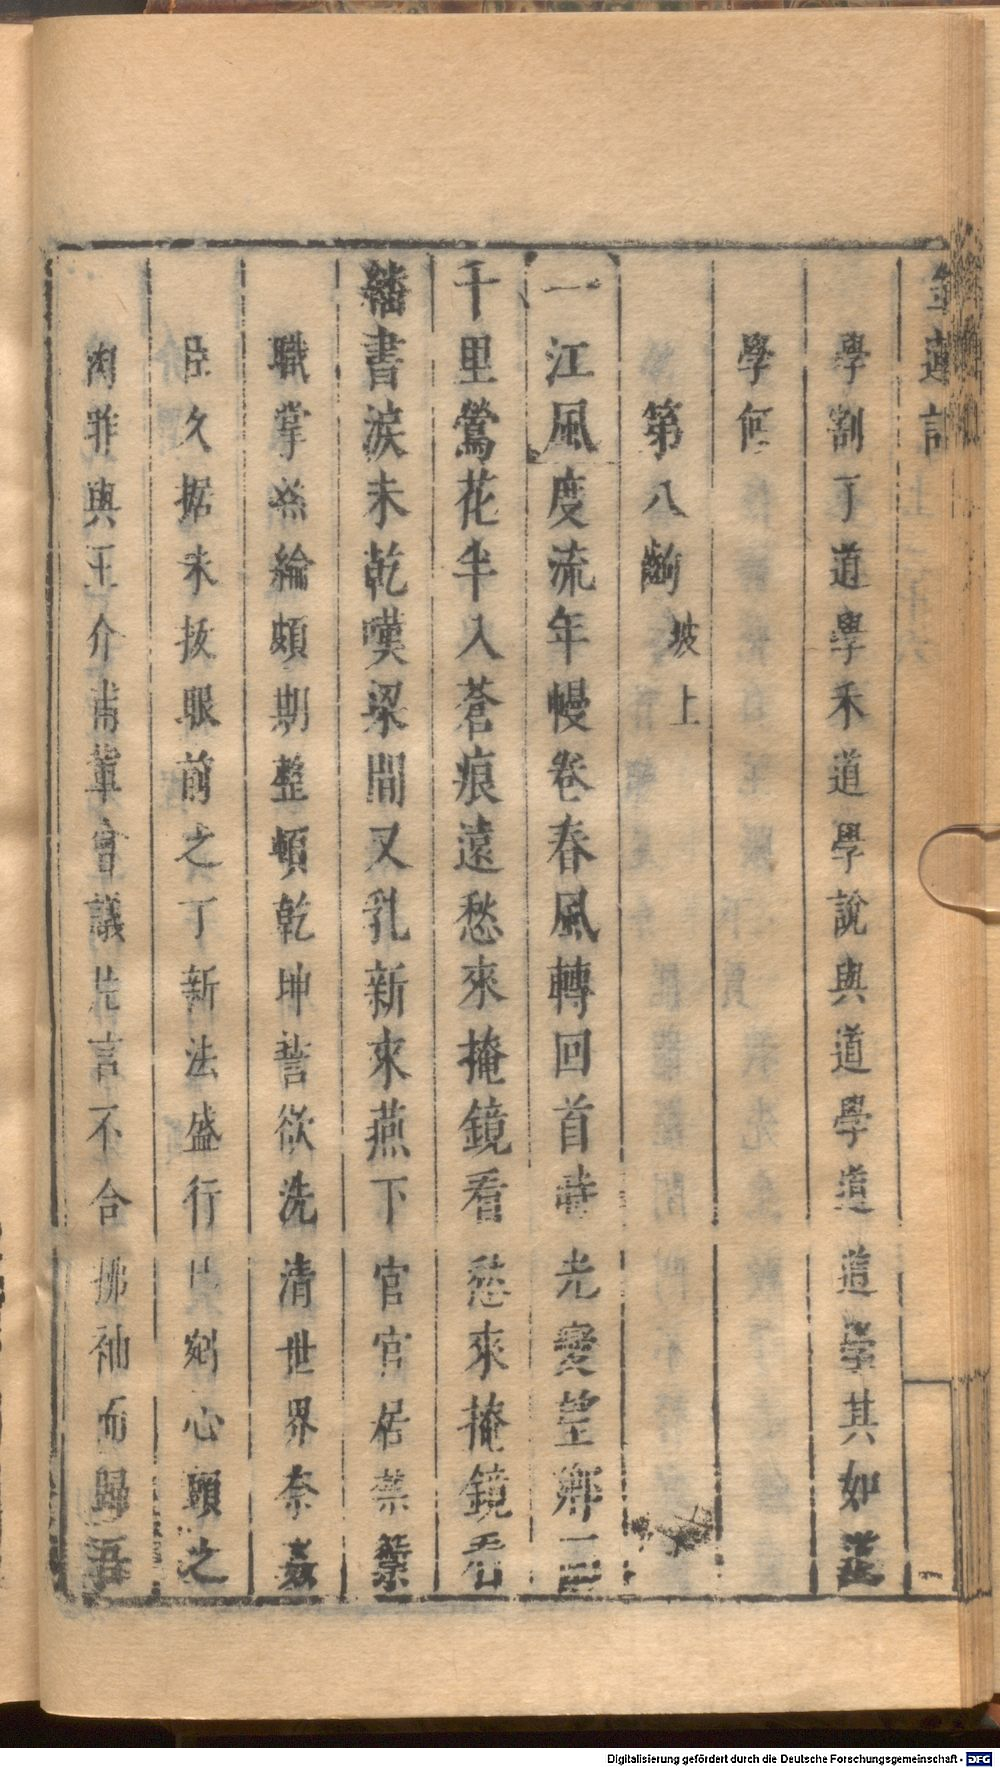 金蓮記
學割了道學禾道學說與道學道道學其如孟
學何
第八齣 坡上
一江風度流年幔卷春風轉回首 光變望鄉三
千里鶯花半入蒼痕遠愁來掩鏡看愁來掩鏡看
繙書淚未乾嘆梁間又乳新來燕下官官居禁籞
職掌絲綸頗期整頓乾坤誓欲洗清世界奈姦
臣久据未拔眼前之丁新法盛行 剜心頭之
肉昨與王介甫輩會議片言不合拂袖而歸吾
Digitalisierung gefördert durch die Deutsche Forschungsgemeinschaft - DFG